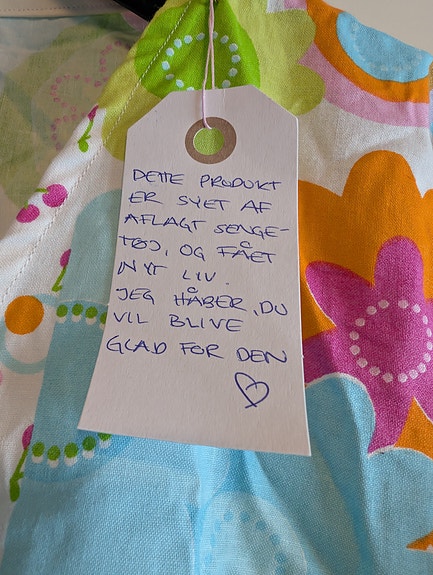 DETTE PRODUKT
ER SYET AF
AFLAGT SENGE-
TØJ, OG FÅET
NYT LIV.
JEG HÅBER, DU
VIL BLIVE
GLAD FOR DEN